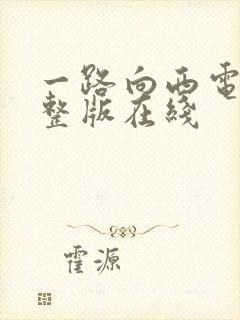 一路向西电
整版在线
霍源